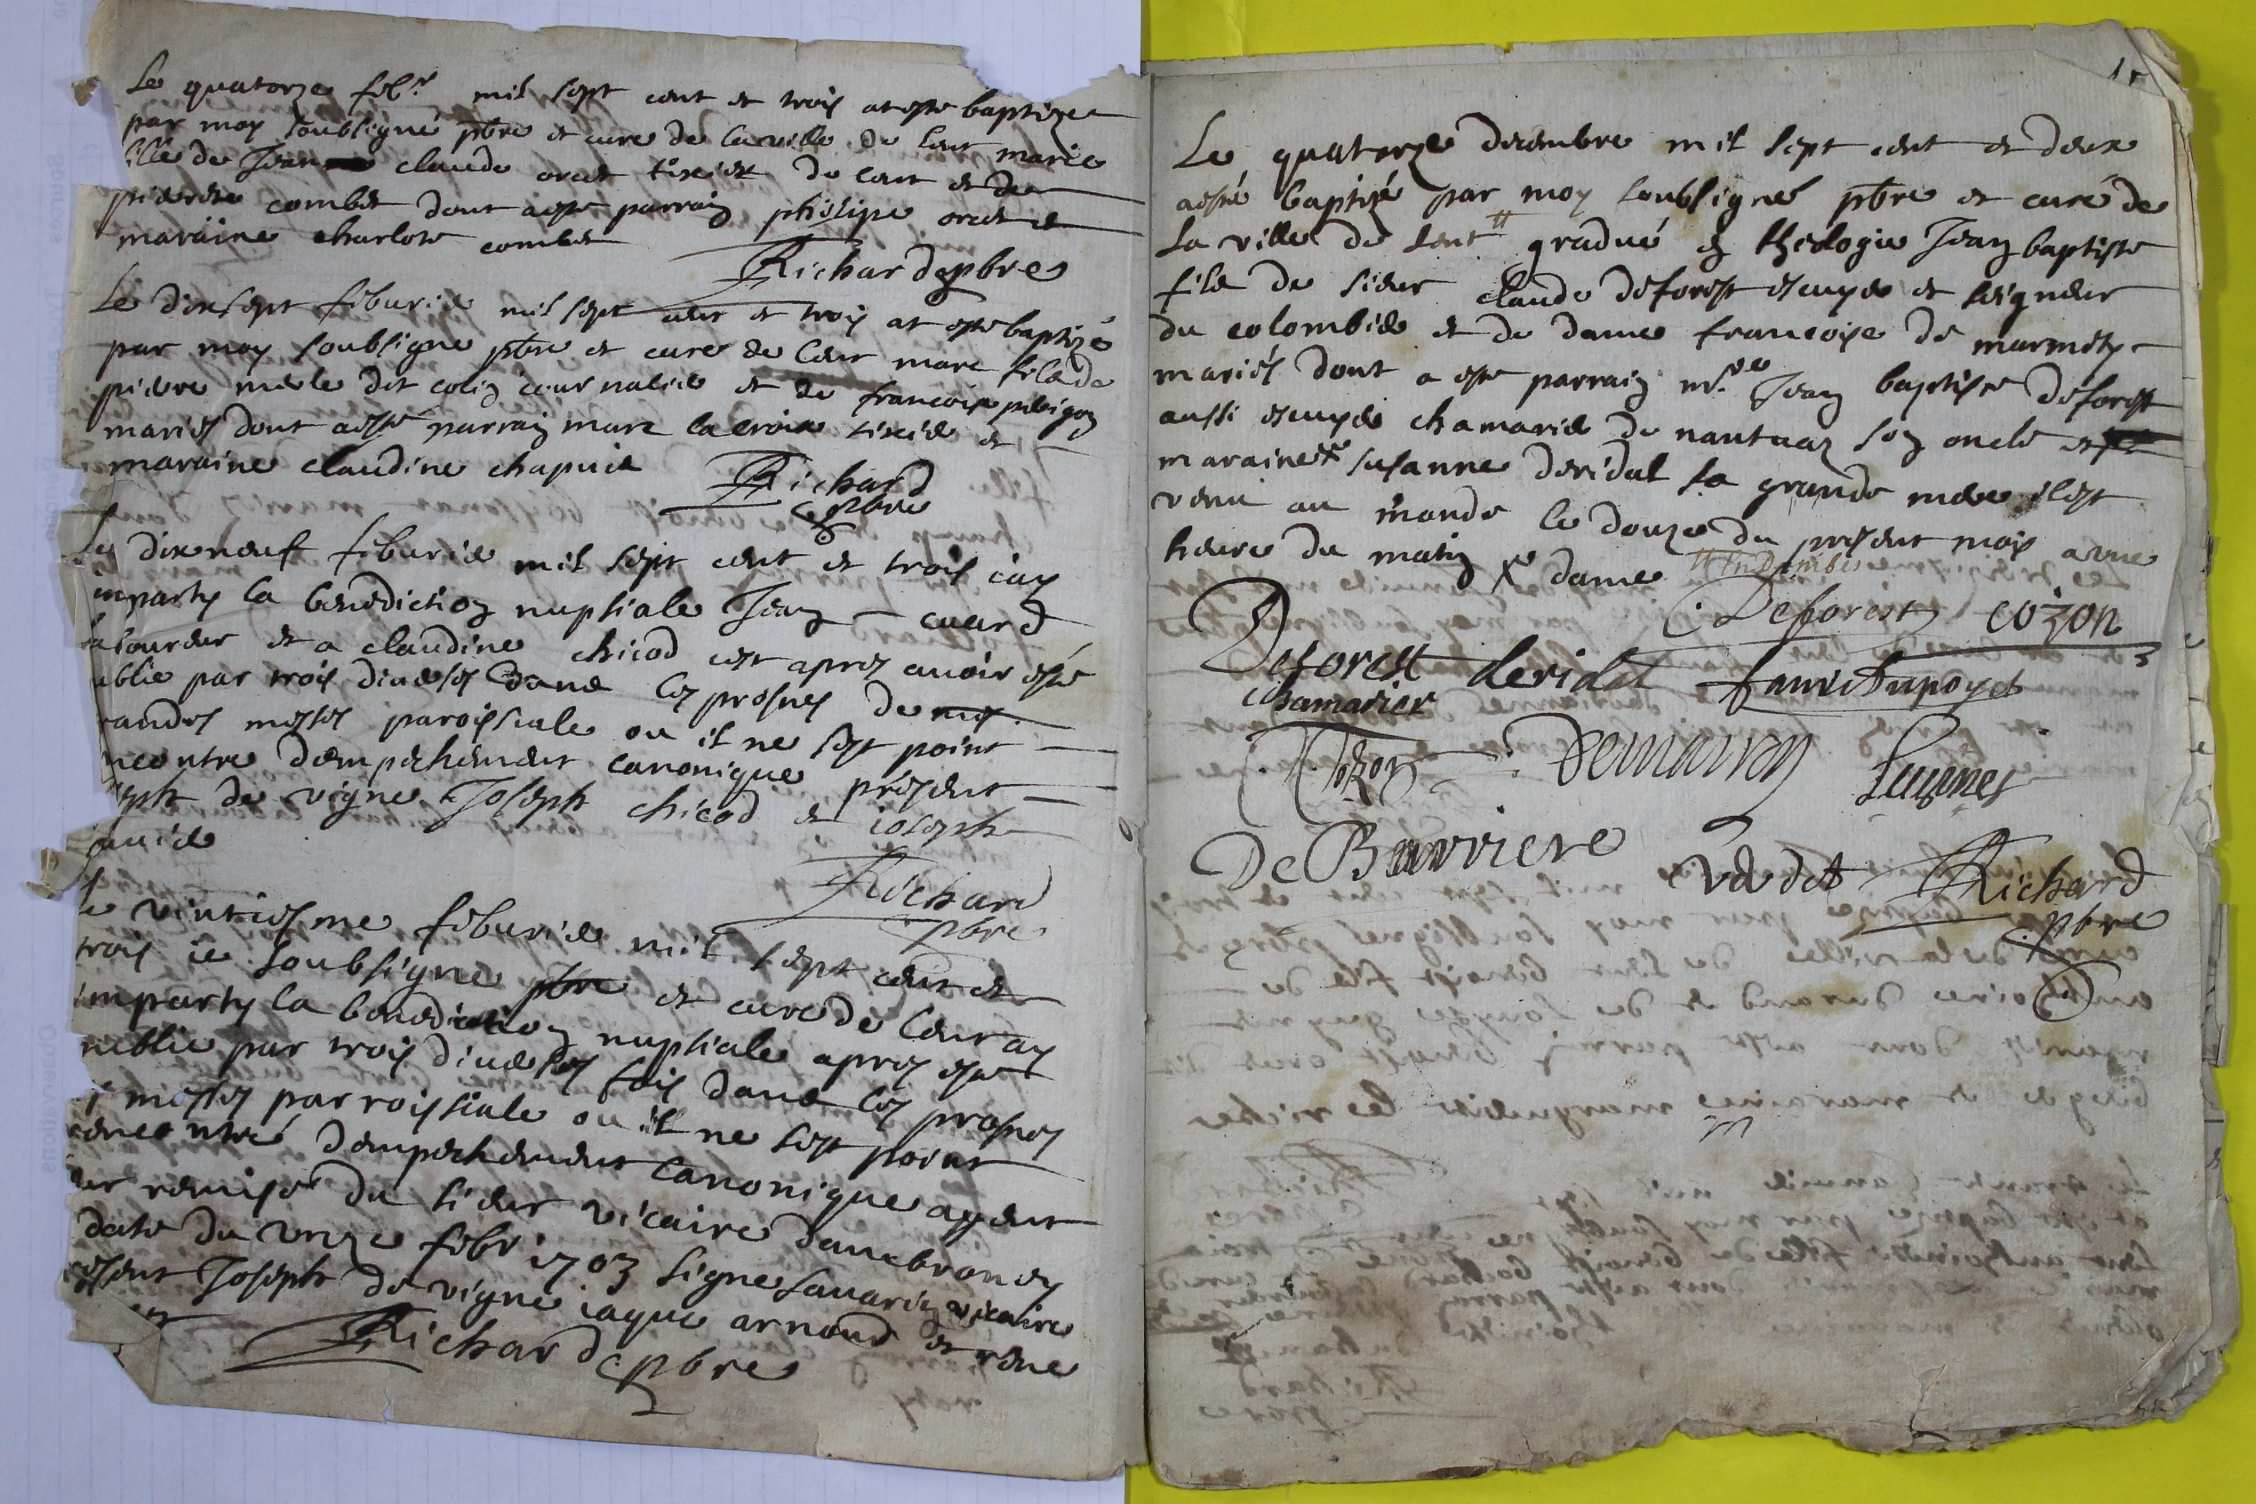 Le quatorze feb.r mil sept cent et trois at este baptizee
par moy soubsigne pbre et cure de la ville de Lent marie
fille de Jean claude orcet tixier de Lent et de
pierrette combet dont a este parrain philipe orcet et
maraine charlote combet
Richard pbre
Le dixsept feburier mil sept cent et trois at este baptizé
par moy soubsigne pbre et cure de Lent marc fils de
pierre merle dit colin journalier et de francoise
mariés dont a esté parrain marc lacroix tixier et
maraine claudine chapuis
Richard
pbre
dixneuf feburier mil sept cent et trois iay
imparty la benediction nuptiale Jean cuard
laboureur et a claudine chicod cest apres avoir esté
ublié par trois diverses dans les prosnes de
randes messes paroissiale ou il ne sest point
ncontre dempechement canonique présent
seph de vigne Joseph chicod et ioseph
Richard
pbre
Le vintiesme feburier mil sept cent et
trois ie soubsigne pbre et cure de Lent ay
imparty la benediction nuptiale apres este
publie par trois diverses fois dans les prosnes
messes parroissiale ou il ne sest point
rencontré dempechement canonique ayant
remise du sieur vicaire
date du onze febr 1703 signe savarin vicaire
present Joseph de vigne iaque arnoud et
Richard pbre
15
Le quatorze decembre mil sept cent et deux
a esté baptizé par moy soubsigné pbre et curé de
la ville de Lent # gradué en theologie Jean baptiste
fils de sieur claude deforest escuyer et seigneur
du colombier et de dame francoise de marmety
mariés dont a esté parrain m.re Jean baptiste deforest
aussi escuyer chamarier de nantuaz son oncle et
maraine x susanne deridat sa grande mere il est
venu au monde le douze du present mois a une
heure du matin x dame # En Dombes
Deforest cozon
Deforest deridat
chamarier
Cozon
De Barriere
Richard
pbre